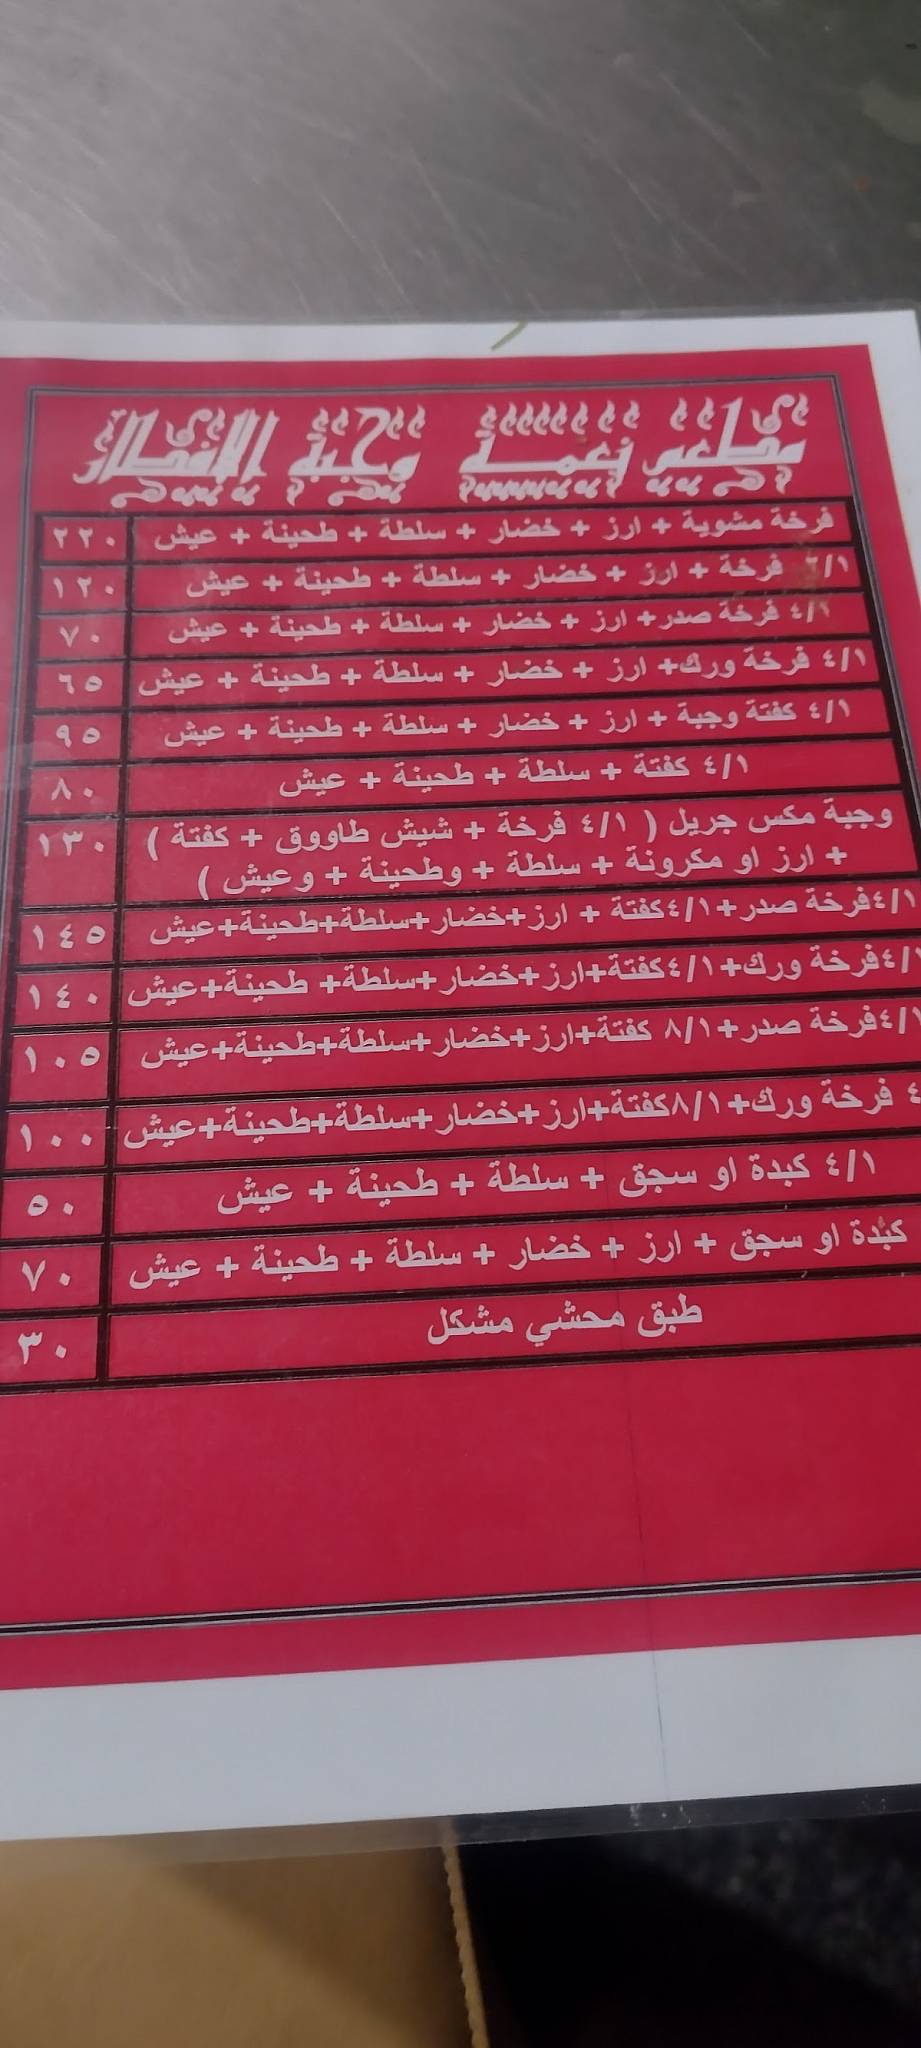 مطعم نعمة وجبة الافطار
فرخة مشوية + ارز + خضار + سلطة + طحينة + عيش ٢٢٠
٢/١ فرخة + ارز + خضار + سلطة + طحينة + عيش ١٢٠
٤/١ فرخة صدر+ ارز + خضار + سلطة + طحينة + عيش ٧٠
٤/١ فرخة ورك+ ارز + خضار + سلطة + طحينة + عيش ٦٥
٤/١ كفتة وجبة + ارز + خضار + سلطة + طحينة + عيش ٩٥
٤/١ كفتة + سلطة + طحينة + عيش ٨٠
وجبة مكس جريل ( ٤/١ فرخة + شيش طاووق + كفتة ) ١٣٠
+ ارز او مكرونة + سلطة + وطحينة + وعيش )
٤/١فرخة صدر+٤/١كفتة + ارز+خضار+سلطة+طحينة+عيش ١٤٥
٤/١فرخة ورك+٤/١كفتة+ارز+خضار+سلطة+ طحينة+عيش ١٤٠
٤/١فرخة صدر+٨/١ كفتة+ارز+خضار+سلطة+طحينة+عيش ١٠٥
٤ فرخة ورك+٨/١كفتة+ارز+خضار+سلطة+طحينة+عيش ١٠٠
٤/١ كبدة او سجق + سلطة + طحينة + عيش ٥٠
كبدة او سجق + ارز + خضار + سلطة + طحينة + عيش ٧٠
طبق محشي مشكل ٣٠